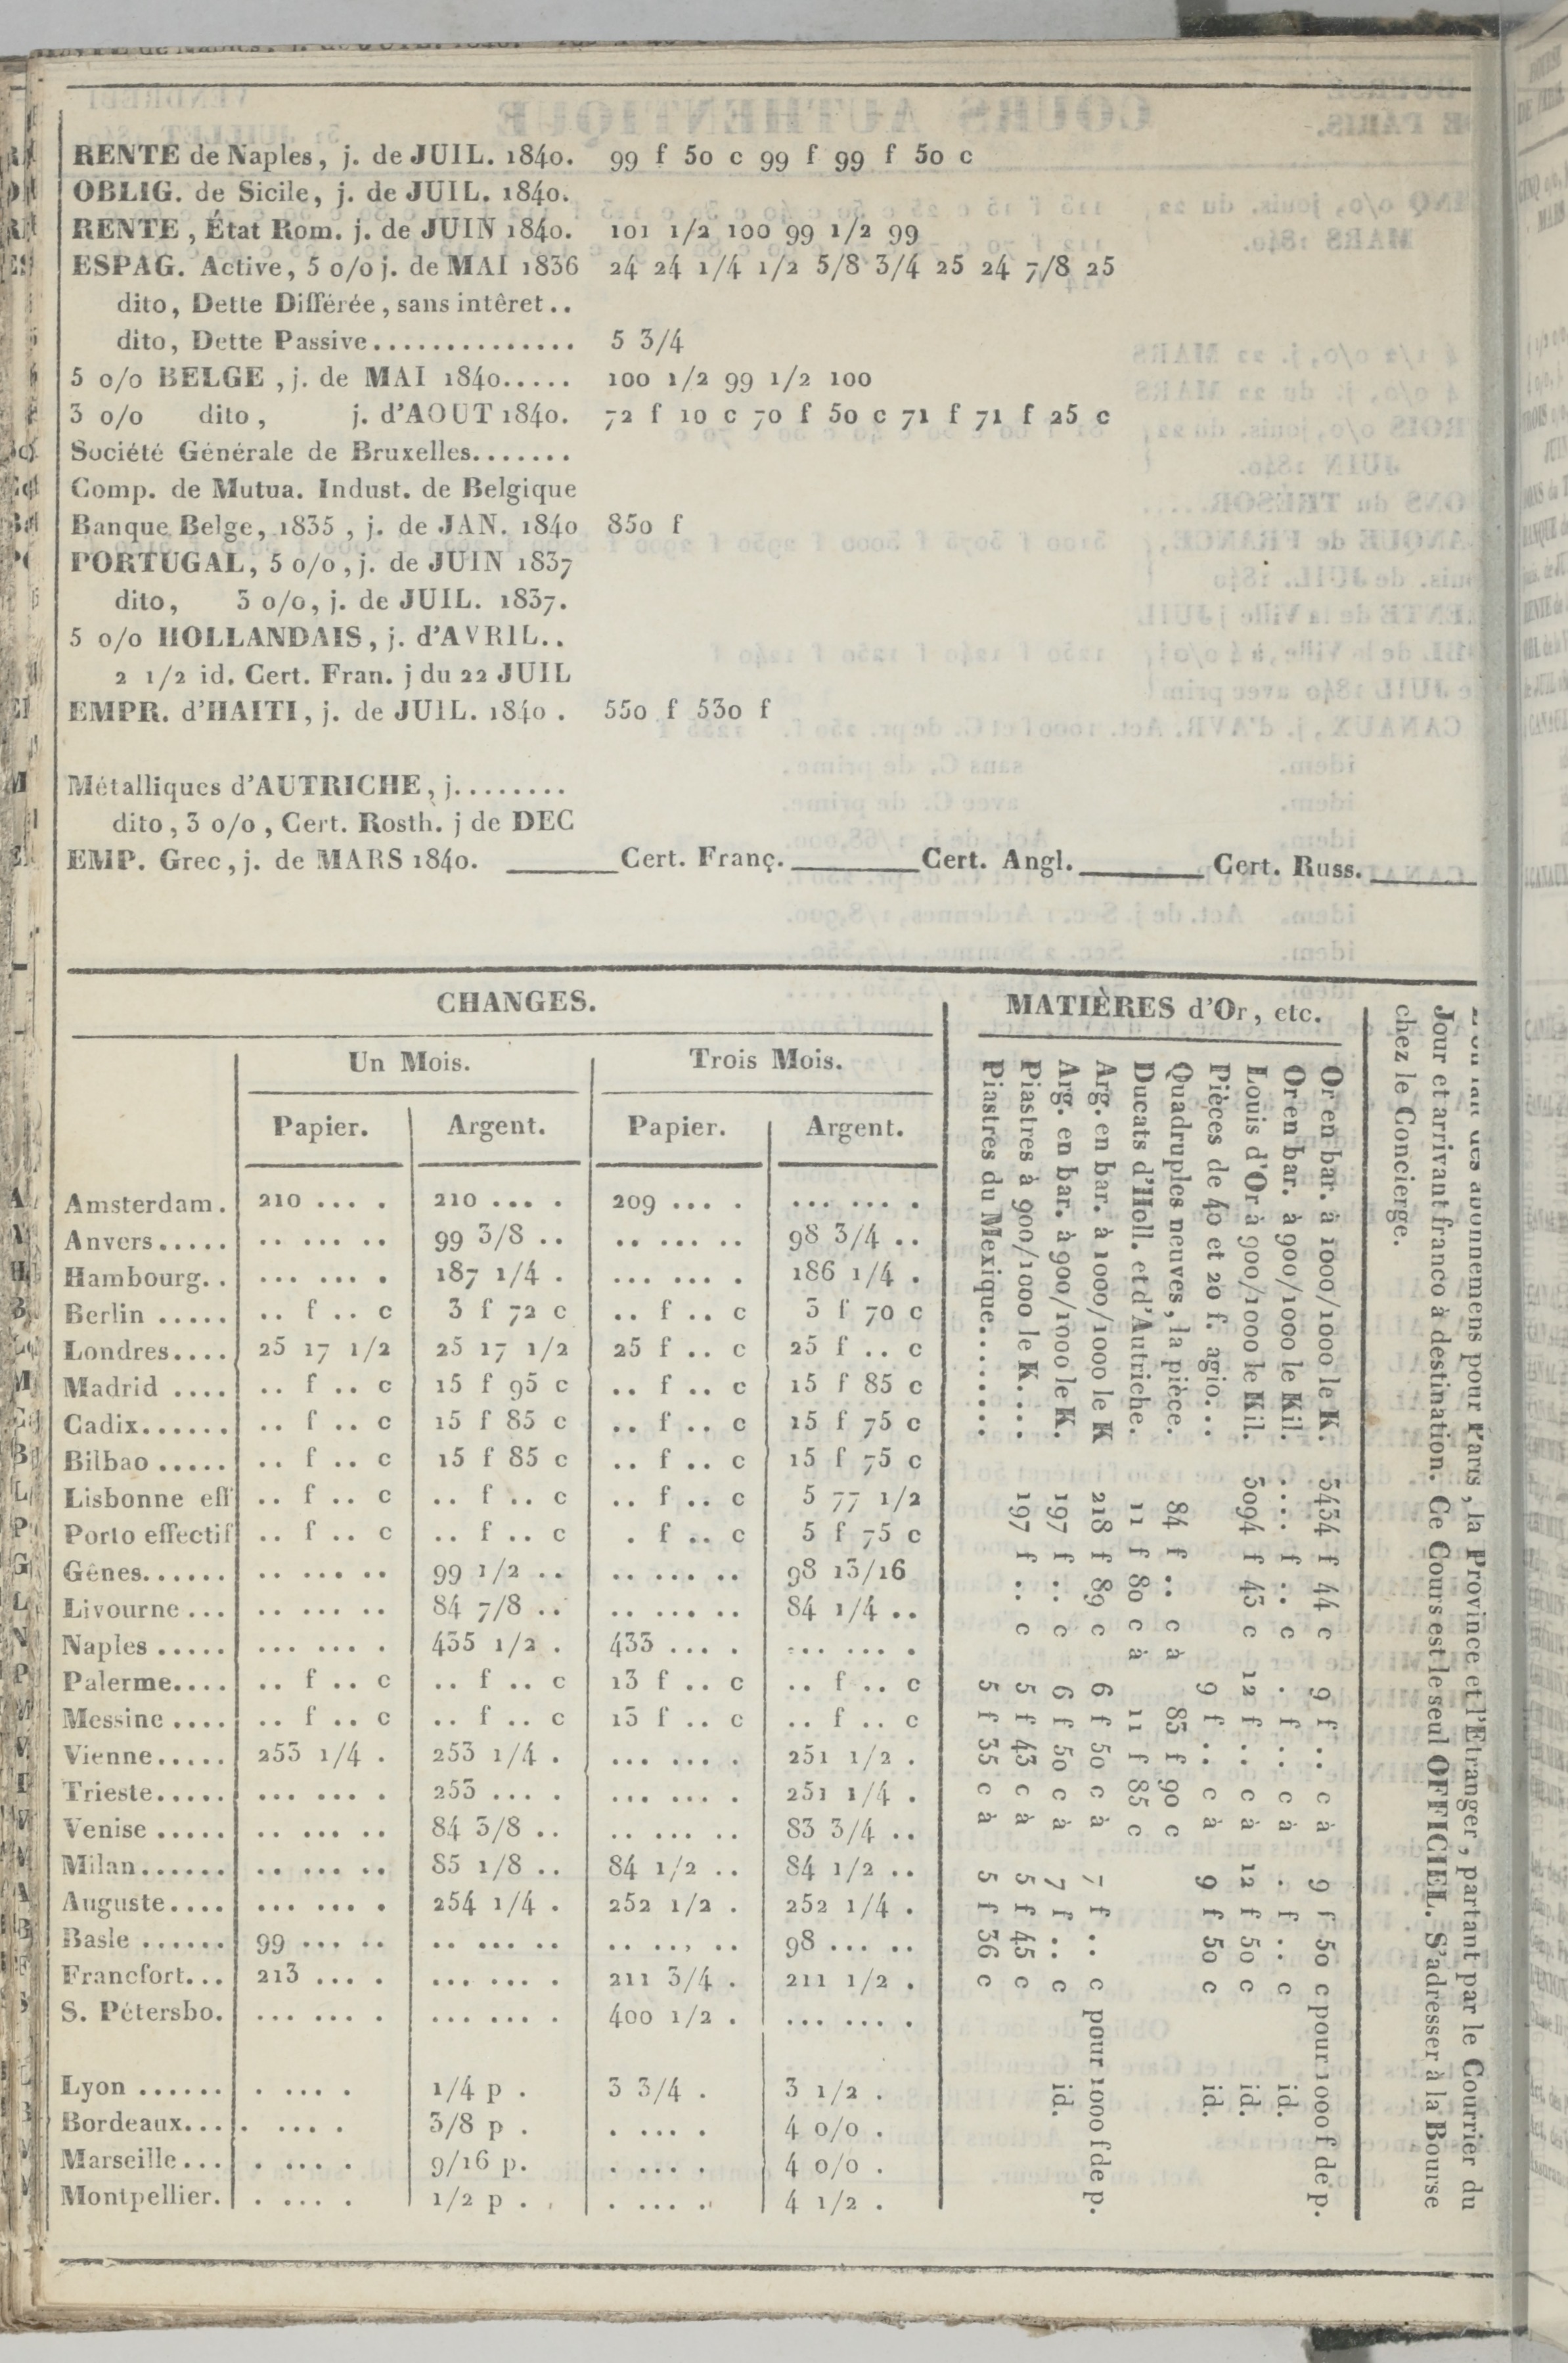 RENTE de Naples, j. de JUIL. 1840. 99 f 50 c 99 f 99 f 50 c
OBLIG. de Sicile, j. de JUIL. 1840.
RENTE, État Rom. j. de JUIN 1840. 101 1/2 100 99 1/2 99
ESPAG. Active, 5 o/o j. de MAI 1836 24 24 1/4 1/2 5/8 3/4 25 24 7/8 25
dito, Dette Différée, sans intêret..
dito, Dette Passive.............. 5 3/4
5 o/o BELGE, j. de MAI 1840..... 100 1/2 99 1/2 100
3 o/o dito, j. d'AOUT 1840. 72 f 10 c 70 f 50 c 71 f 71 f 25 c
Société Générale de Bruxelles.......
Comp. de Mutua. Indust. de Belgique
Banque Belge, 1835, j. de JAN. 1840 850 f
PORTUGAL, 5 o/o, j. de JUIN 1837
dito, 3 o/o, j. de JUIL. 1837.
5 o/o HOLLANDAIS, j. d'AVRIL..
2 1/2 id. Cert. Fran. j du 22 JUIL
EMPR. d'HAITI, j. de JUIL. 1840. 550 f 530 f
Métalliques d'AUTRICHE, j........
dito, 3 o/o, Cert. Rosth. j de DEC
EMP. Grec, j. de MARS 1840. ______ Cert. Franç. ______ Cert. Angl. ______ Cert. Russ. ______
CHANGES.
Un Mois. Trois Mois.
Papier. Argent. Papier. Argent.
Amsterdam. 210 ... . 210 ... . 209 ... . ... ... .
Anvers..... .. ... .. 99 3/8 .. .. ... .. 98 3/4 ..
Hambourg.. ... ... . 187 1/4 . ... ... . 186 1/4 .
Berlin ..... .. f .. c 3 f 72 c .. f .. c 3 f 70 c
Londres.... 25 17 1/2 25 17 1/2 25 f .. c 25 f .. c
Madrid .... .. f .. c 15 f 95 c .. f .. c 15 f 85 c
Cadix...... .. f .. c 15 f 85 c .. f .. c 15 f 75 c
Bilbao ..... .. f .. c 15 f 85 c .. f .. c 15 f 75 c
Lisbonne eff .. f .. c .. f .. c .. f .. c 5 77 1/2
Porto effectif .. f .. c .. f .. c . f .. c 5 f 75 c
Gênes...... .. ... .. 99 1/2 .. .. ... .. 98 13/16
Livourne ... .. ... .. 84 7/8 .. .. ... .. 84 1/4 ..
Naples ..... ... ... . 435 1/2 . 433 ... . ... ... .
Palerme.... .. f .. c .. f .. c 13 f .. c .. f .. c
Messine .... .. f .. c .. f .. c 13 f .. c .. f .. c
Vienne..... 253 1/4 . 253 1/4 . ... ... . 251 1/2 .
Trieste..... ... ... . 253 ... . ... ... . 251 1/4 .
Venise ..... .. ... .. 84 3/8 .. .. ... .. 83 3/4 ..
Milan...... .. ... .. 85 1/8 .. 84 1/2 .. 84 1/2 ..
Auguste.... ... ... . 254 1/4 . 252 1/2 . 252 1/4 .
Basle ...... 99 ... .. .. ... .. .. ... .. 98 ... ..
Francfort... 213 ... . ... ... . 211 3/4 . 211 1/2 .
S. Pétersbo. ... ... . ... ... . 400 1/2 . ... ... .
Lyon ...... . .... . 1/4 p . 3 3/4 . 3 1/2 .
Bordeaux... . .... . 3/8 p . . .... . 4 o/o .
Marseille... . .... . 9/16 p. . .... . 4 o/o .
Montpellier. . .... . 1/2 p . . .... . 4 1/2 .
MATIÈRES d'Or, etc.
Or en bar. à 1000/1000 le K. 3434 f 44 c 9 f .. c à 9 f 50 c pour 1000 f de p.
Or en bar. à 900/1000 le Kil. .... f .. c . f .. c à . f .. c id.
Louis d'Or à 900/1000 le Kil. 3094 f 43 c 12 f .. c à 12 f 50 c id.
Pièces de 40 et 20 f. agio... 9 f .. c à 9 f 50 c id.
Quadruples neuves, la pièce. 84 f .. c à 83 f 90 c
Ducats d'Holl. et d'Autriche. 11 f 80 c à 11 f 85 c
Arg. en bar. à 1000/1000 le K 218 f 89 c 6 f 50 c à 7 f .. c pour 1000 f de p.
Arg. en bar. à 900/1000 le K. 197 f .. c 6 f 50 c à 7 f .. c id.
Piastres à 900/1000 le K.... 197 f .. c 5 f 43 c à 5 f 45 c
Piastres du Mexique....... 5 f 35 c à 5 f 36 c
des abonnemens pour Paris, la Province et l'Etranger, partant par le Courrier du
Jour et arrivant franco à destination. Ce Cours est le seul OFFICIEL. S'adresser à la Bourse
chez le Concierge.